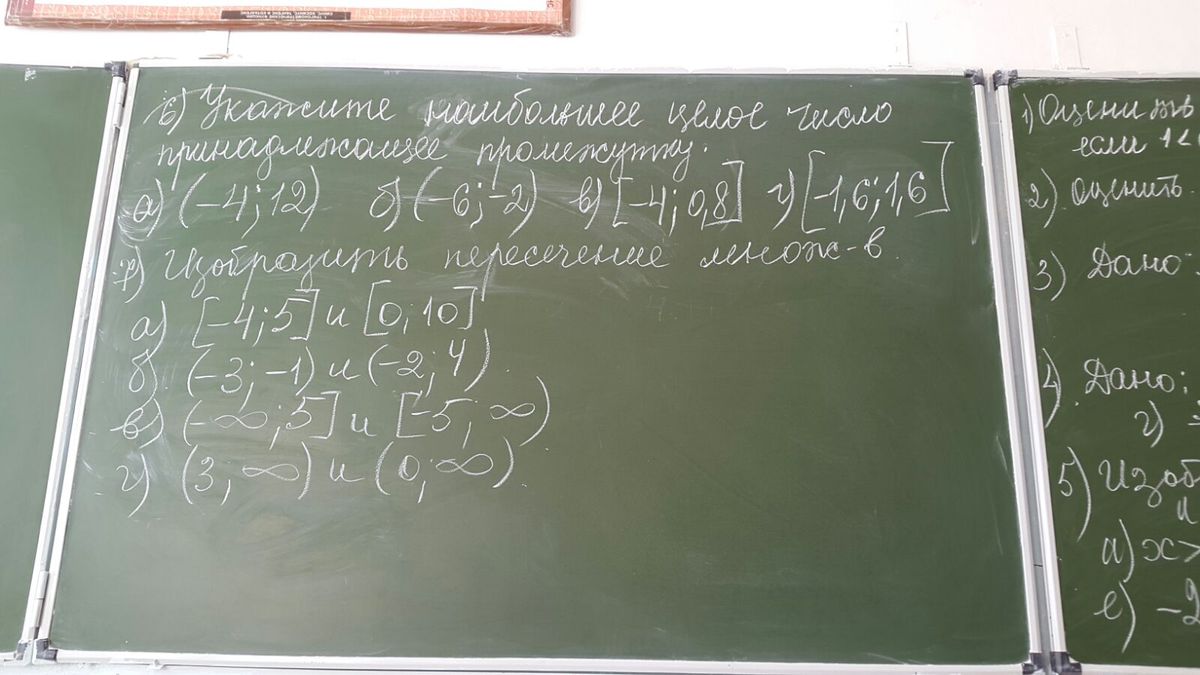 1. ТРИГОНОМЕТРИЧЕСКИЕ ФУНКЦИИ
6) Укажите наибольшее целое число
принадлежащее промежутку.
а) (-4; 12) б) (-6; -2) в) [-4; 0,8] г) [-1,6; 1,6]
7) Изобразить пересечение множ-в.
а) [-4; 5] и [0; 10]
б) (-3; -1) и (-2; 4)
в) (-∞; 5] и [-5; ∞)
г) (3; ∞) и (0; ∞).
1) Оцени
если 1<
2) Оценить
3) Дано:
4) Дано:
г)
5) Изоб
и
а) x>
е) -2